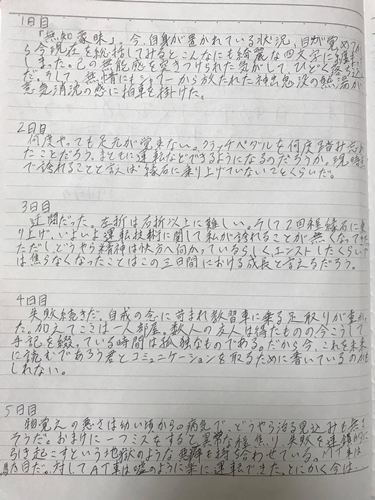 1日目
「無知蒙昧」。今、自身が置かれている状況、目が覚めてから
今現在を総括してみるとこんなにも綺麗な四文字に為
しまった。己の無能感を突きつけられた気がして、ひどく落ち込ん
だ。そして、無情にもシャワーから放たれた神出鬼没の熱湯が
意気消沈の感に拍車を掛けた。
2日目
何度やっても足元が覚束ない。クラッチペダルを何度踏み忘れ
たことだろう。まともに運転などできるようになるのだろうか。現時点
で誇れることと言えば縁石に乗り上げていないことくらいだ。
3日目
迂闊だった。左折は右折以上に難しい。そして2回程縁石に乗
り上げ、いよいよ運転技術に関して私が誇れることが無くなった
ただし、どうやら精神は快方へ向かっているらしく、エンストしたくらいで
は焦らなくなったことはこの三日間における成長と言えるだろう。
4日目
失敗続きだ。自戒の念に苛まれ教習車に乗る足取りが重か
った。加えてここは一人部屋。数人の友人は得たものの今こうして
手記を綴っている時間は孤独なものである。だから今、これを未来
に読むであろう君とコミュニケーションを取るために書いているのかも
しれない。
5日目
物覚えの悪さは幼い頃からの病気で、どうやら治る見込みも無さ
そうだ。おまけに一つミスをすると異常な程焦り、失敗を連鎖的に
引き起こすという地獄のような悪癖も持ち合わせている。MT車は
駄目だ。対してAT車は嘘のように楽に運転できた。とにかく今は